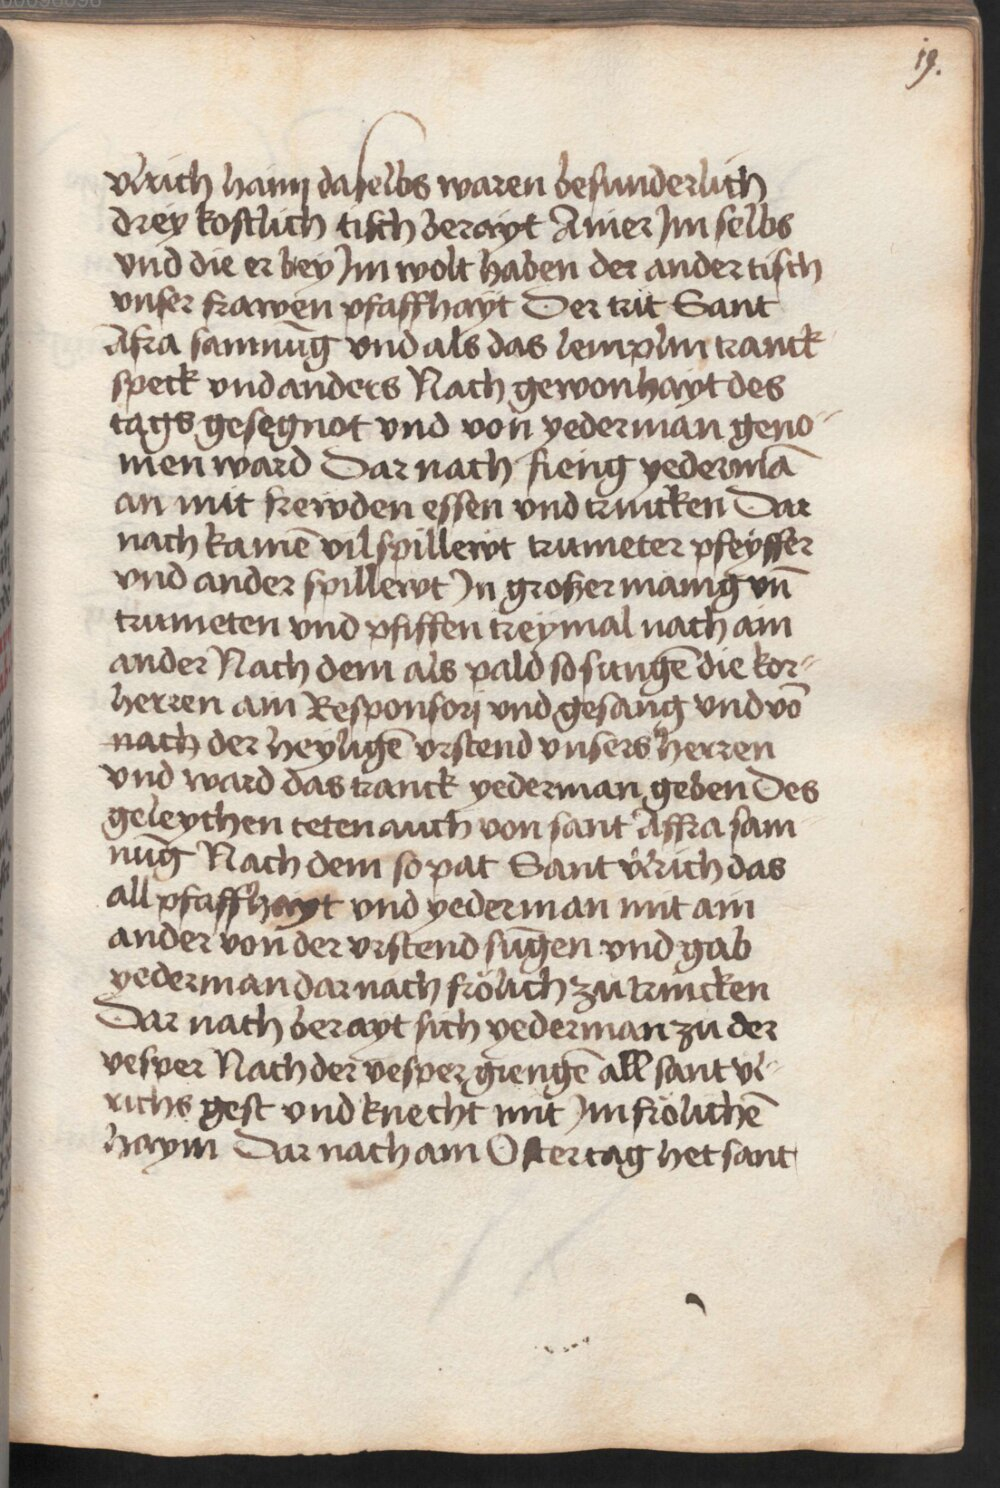 19.
vlrich haim daselbs waren besunderlich
drey kostlich tisch berayt Ainer Im selbs
vnd die er bey Im wolt haben der ander tisch
vnser frawen pfaffhayt Der trit Sant
Afra samnūg vnd als das lemplin tranck
speck vnd anders Nach gewonhayt des
tags gesegnot vnd von yederman geno-
men ward Dar nach fieng yedermā
an mit frewden essen vnd trincken Dar
nach kamē vil spillewt trumeter pfeyffer
vnd ander spillewt In großer mainig vn̄
trumeten vnd pfiffen treymal nach ain
ander Nach dem als pald so sungē die kor-
herren ain Responsorj vnd gesang vnd vō
nach der heyligē vrstend vnsers herren
vnd ward das tranck yederman geben Des
geleychen teten auch von sant Affra sam
nūg Nach dem so pat Sant vlrich das
all pfaffhayt vnd yederman mit ain
ander von der vrstend sūgen vnd gab
yederman dar nach frölich zu trincken
Dar nach berayt sich yederman zu der
vesper Nach der vesper giengē all sant vl-
richs gest vnd knecht mit Im frölichē
haym Dar nach am Ostertag het sant